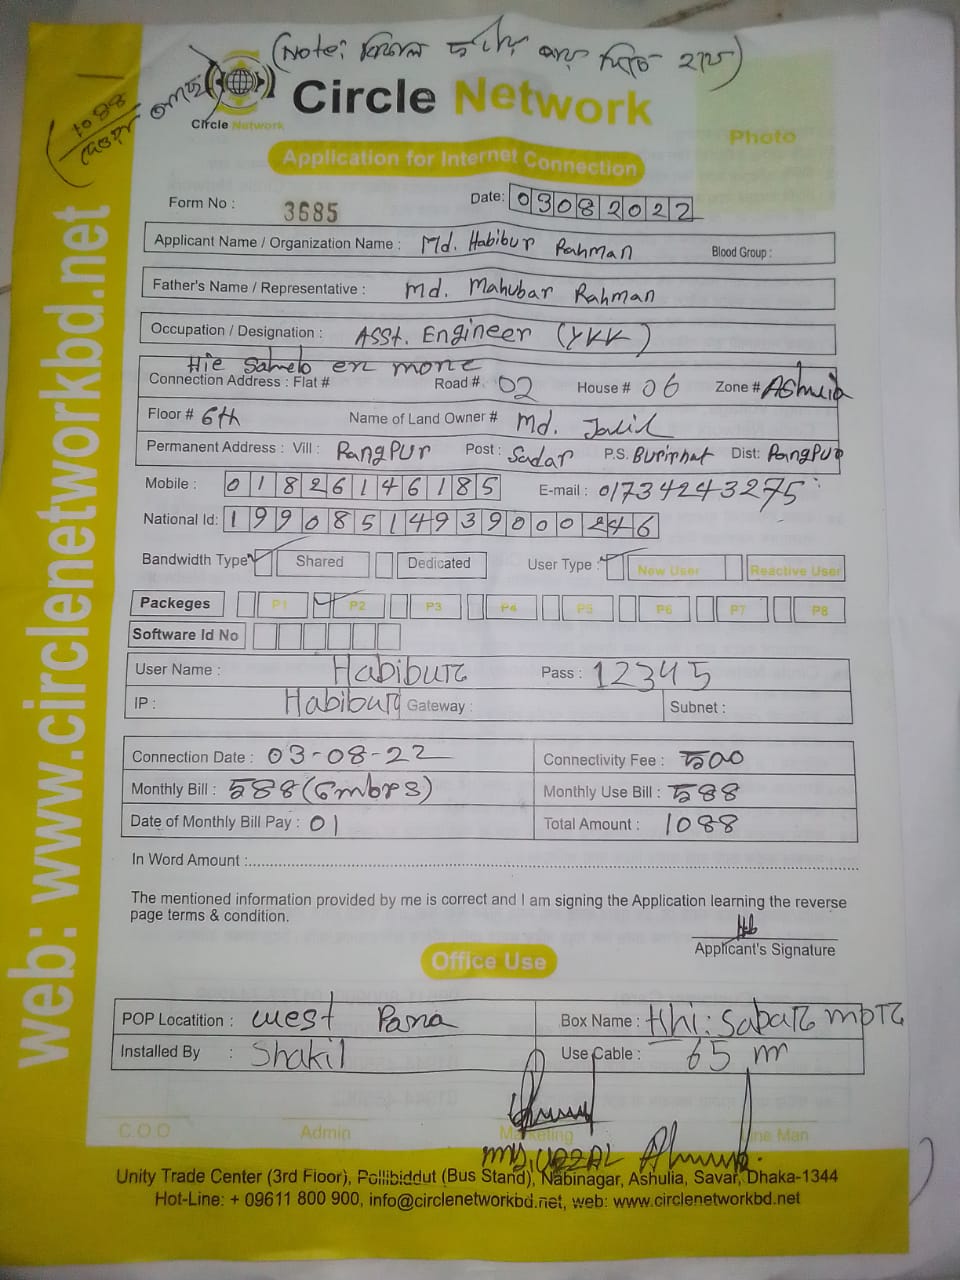 (Note:
1088
Circle Network
Circle Network
Photo
Application for Internet Connection
Form No : 3685 Date: 03082022
Applicant Name / Organization Name : Md. Habibur Rahman Blood Group :
Father's Name / Representative : Md. Mahubar Rahman
Occupation / Designation : Asst. Engineer (YKK)
Connection Address : Flat # Road #. 02 House # 06 Zone # Ashulia
Floor # 6th Name of Land Owner # Md. Jalil
Permanent Address : Vill : RangPur Post : Sadar P.S. Burirhat Dist: RangPur
Mobile : 01826146185 E-mail : 01734243275
National Id: 19908514939000246
Bandwidth Type Shared Dedicated User Type : New User Reactive User
Packeges P1 P2 P3 P4 P5 P6 P7 P8
Software Id No
User Name : Habibur Pass : 12345
IP : Habibur Gateway : Subnet :
Connection Date : 03-08-22 Connectivity Fee : 500
Monthly Bill : 588 (6mbps) Monthly Use Bill : 588
Date of Monthly Bill Pay : 01 Total Amount : 1088
In Word Amount :
The mentioned information provided by me is correct and I am signing the Application learning the reverse
page terms & condition.
Applicant's Signature
Office Use
POP Locatition : west Para Box Name :
Installed By : Shakil Use Cable : 65 m
C.O.O Admin Marketing Line Man
Unity Trade Center (3rd Floor), Pollibiddut (Bus Stand), Nabinagar, Ashulia, Savar, Dhaka-1344
Hot-Line: + 09611 800 900, info@circlenetworkbd.net, web: www.circlenetworkbd.net
web: www.circlenetworkbd.net